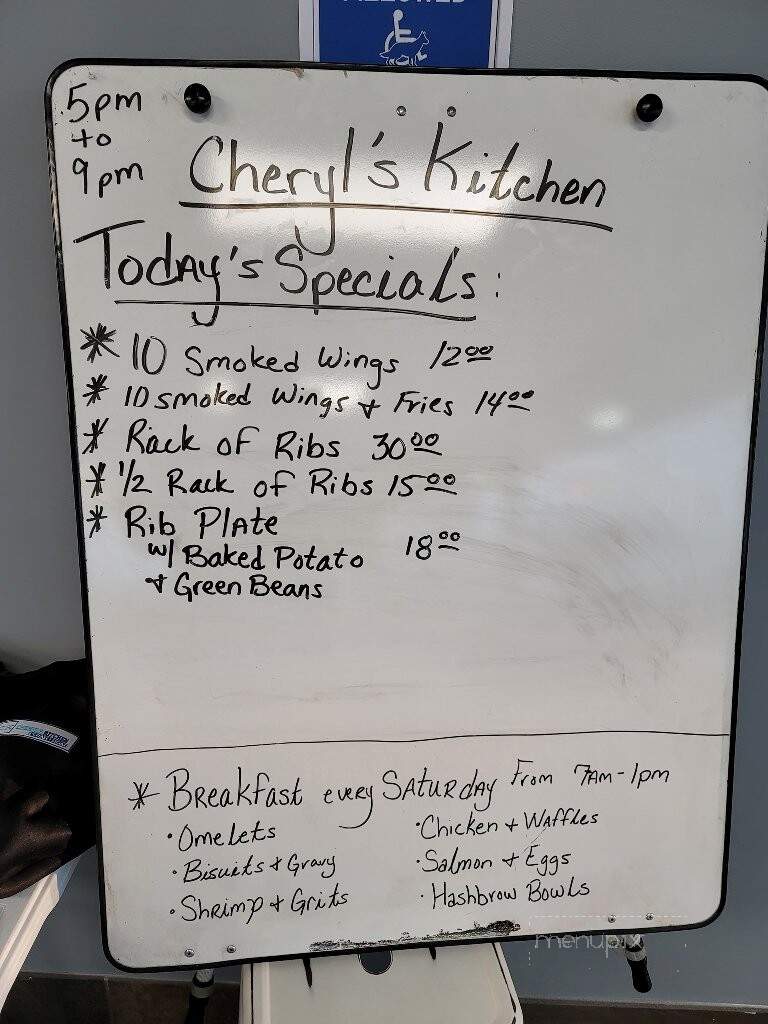 ALLOWED
5pm
to
9pm
Cheryl's Kitchen
Today's Specials:
* 10 Smoked Wings 12⁰⁰
* 10 smoked Wings & Fries 14⁰⁰
* Rack of Ribs 30⁰⁰
* 1/2 Rack of Ribs 15⁰⁰
* Rib Plate
w/ Baked Potato 18⁰⁰
& Green Beans
* Breakfast every Saturday From 7AM-1pm
• Omelets
• Bisuits & Gravy
• Shrimp & Grits
• Chicken & Waffles
• Salmon & Eggs
• Hashbrow Bowls
menupix